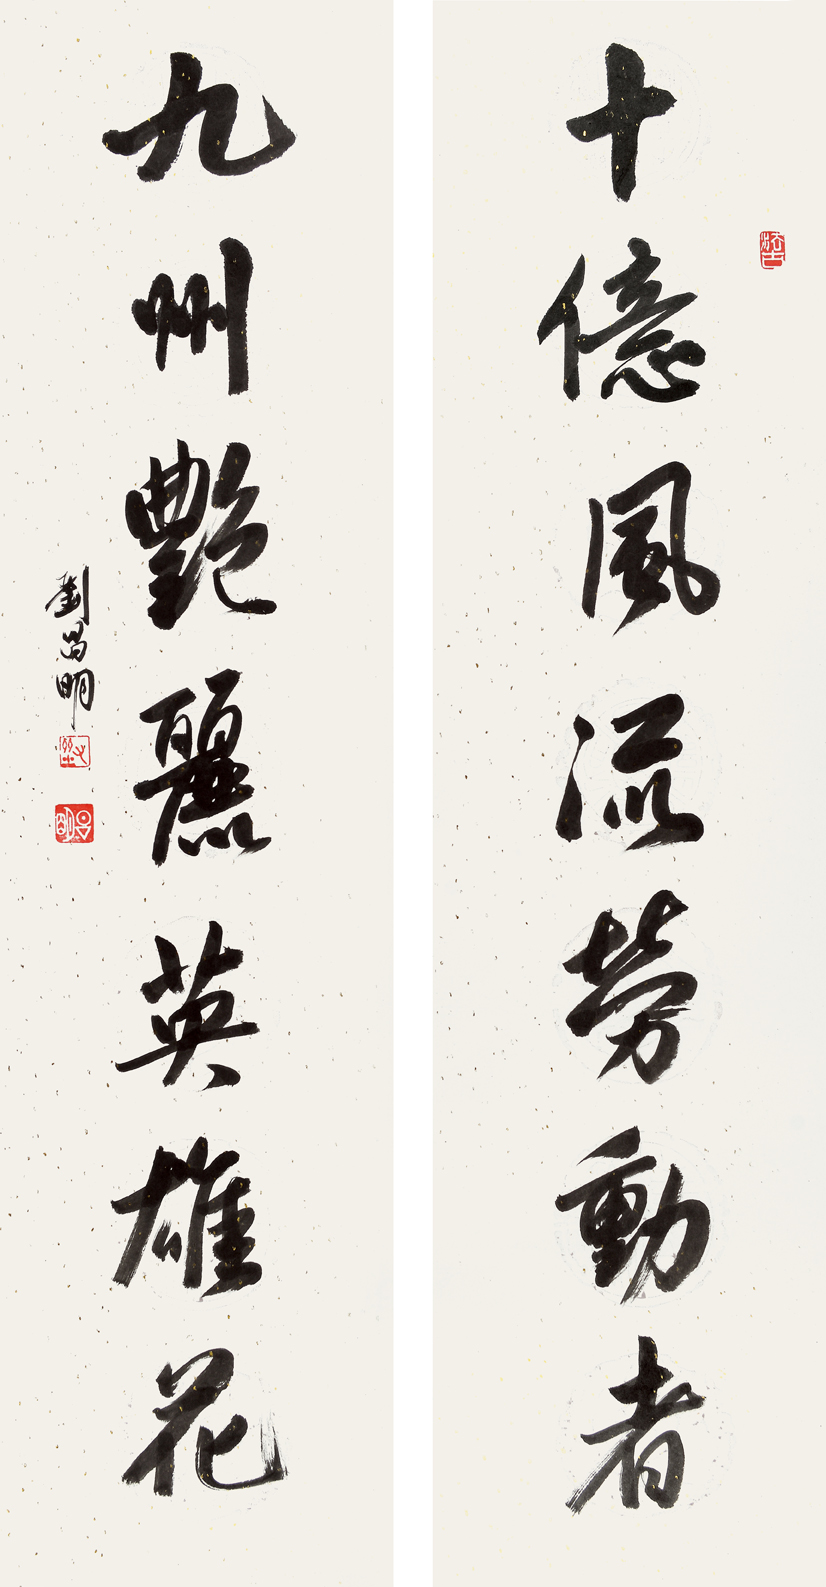 十億風流勞動者
九州艷麗英雄花
劉昌明